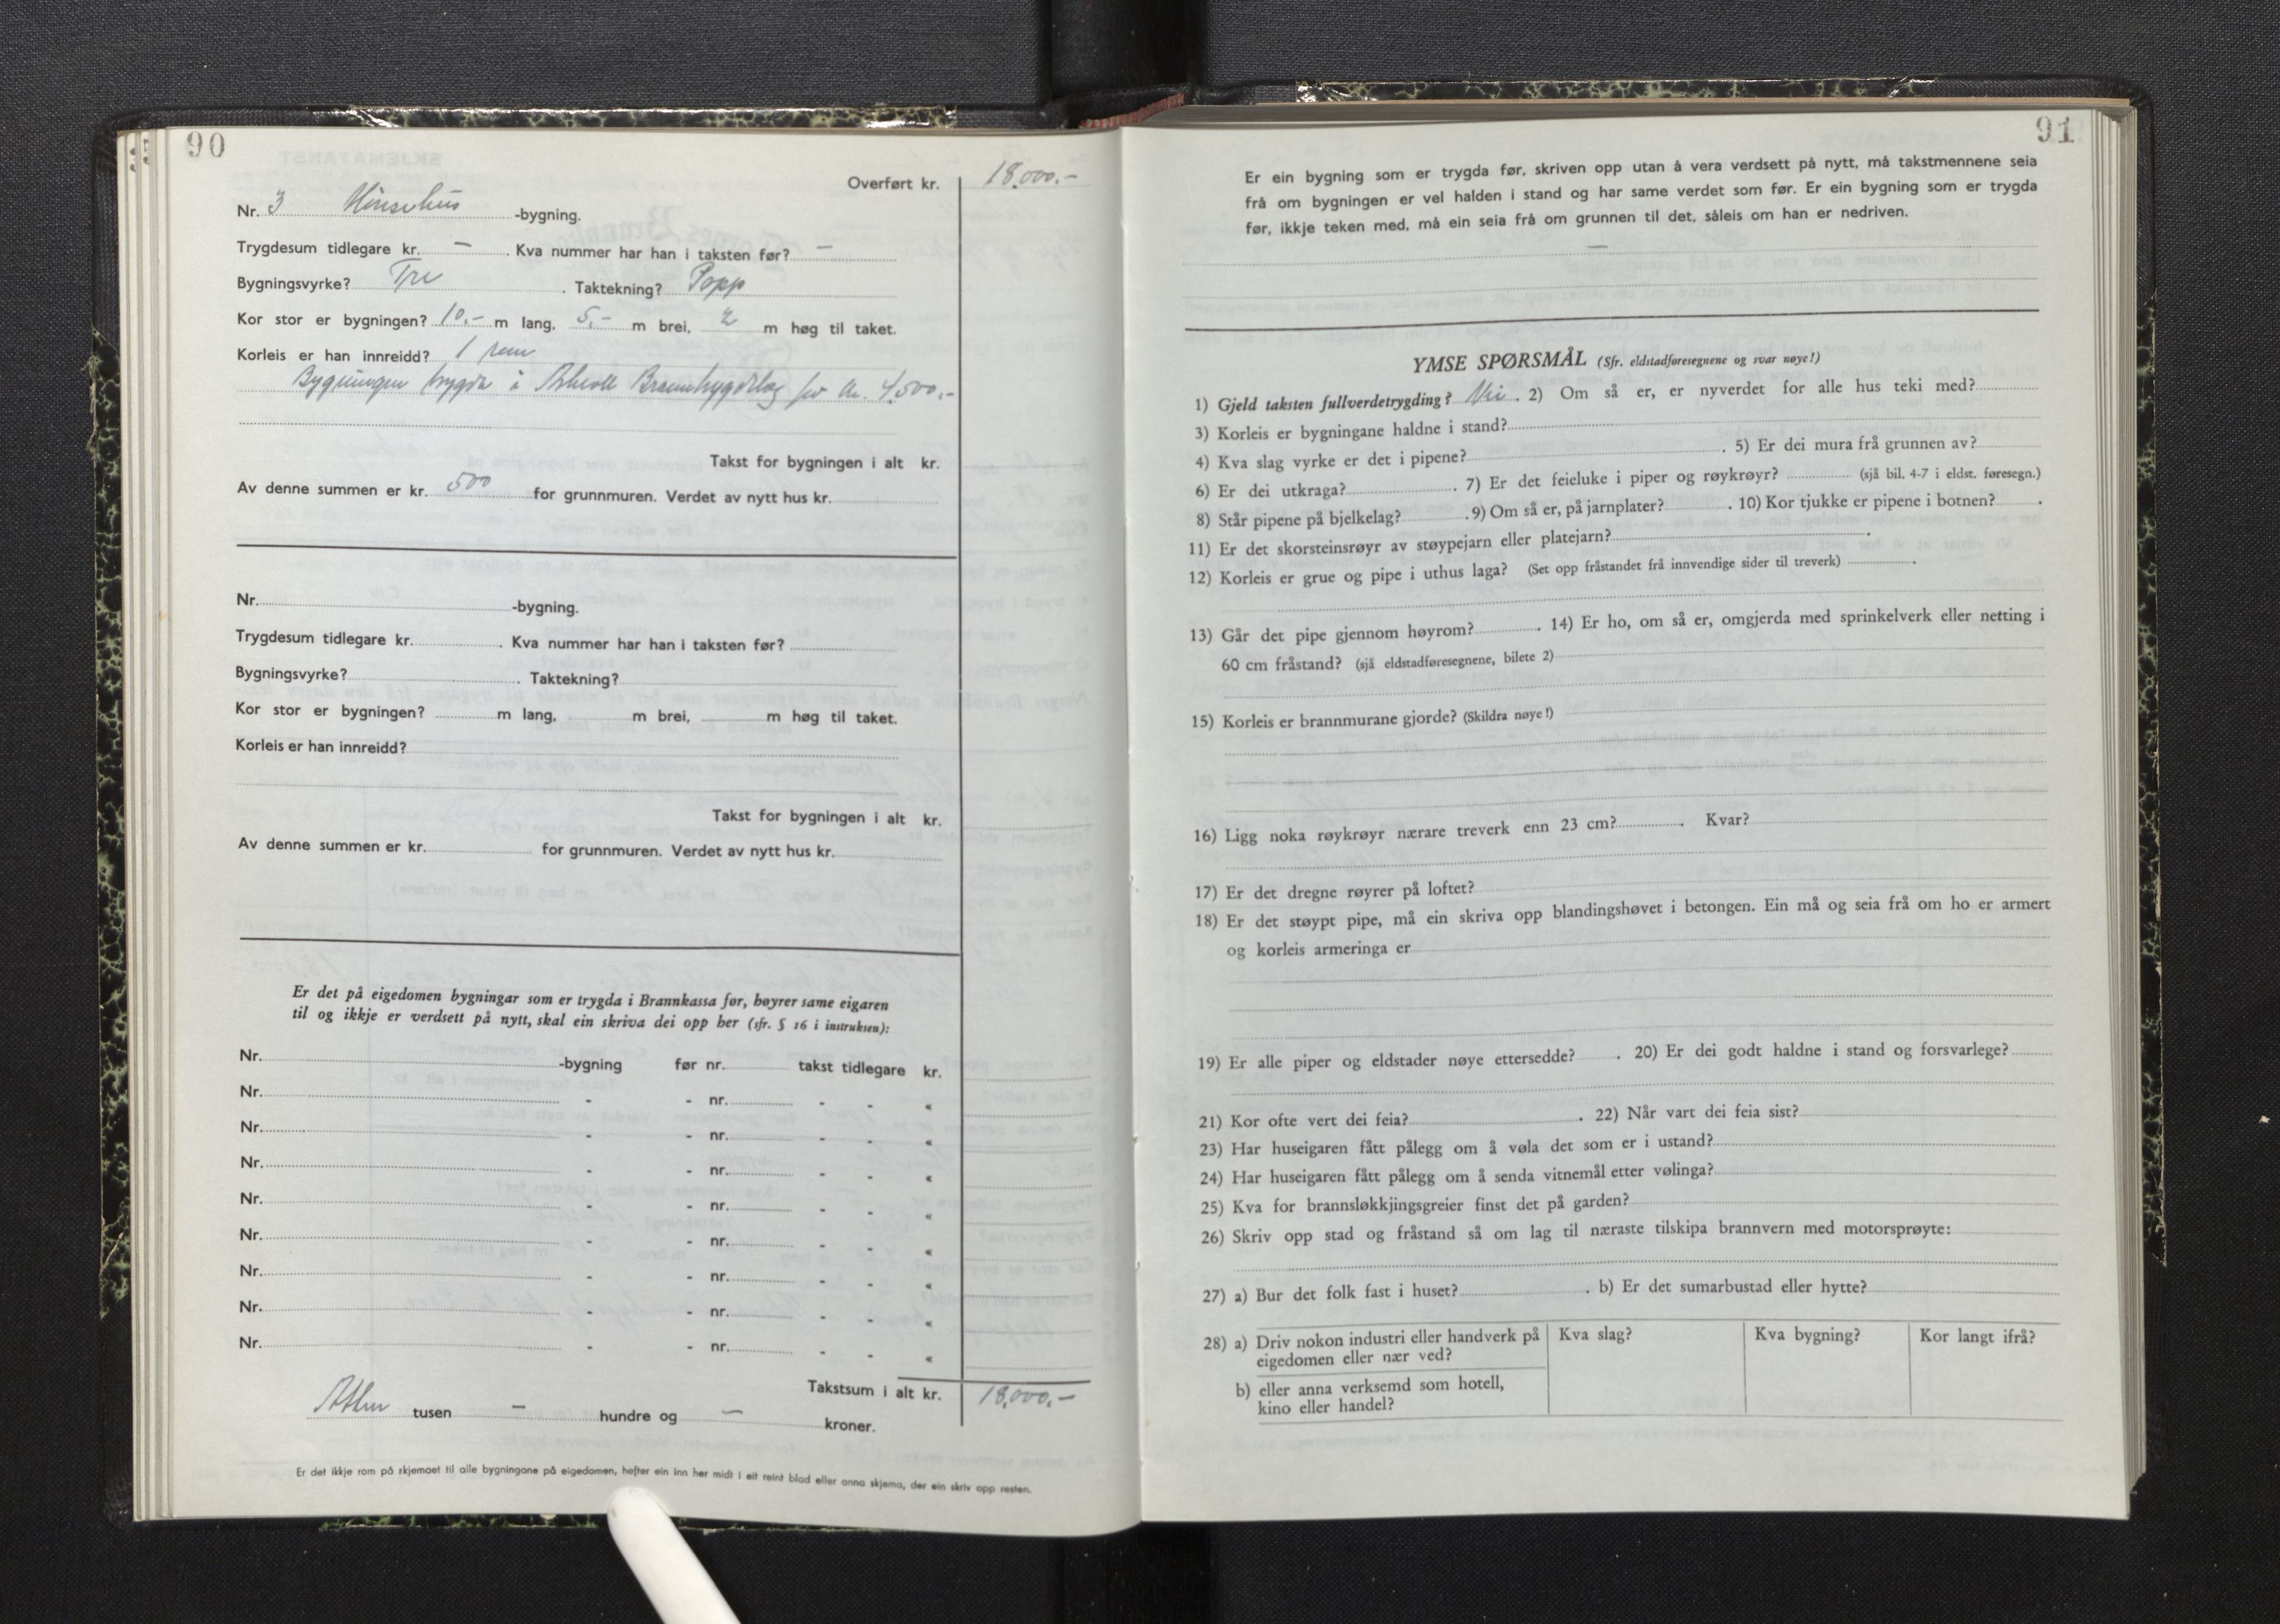 90
Overført kr. 18.000.-
Nr. 3 Hønsehus -bygning.
Trygdesum tidlegare kr. — . Kva nummer har han i taksten før? —
Bygningsvyrke? Tre . Taktekning? Papp
Kor stor er bygningen? 10.- m lang, 5.- m brei, 2 m høg til taket.
Korleis er han innreidd? 1 rom
Bygningen trygda i Brannbygdelag for kr. 4.500.-
Takst for bygningen i alt kr.
Av denne summen er kr. 500 for grunnmuren. Verdet av nytt hus kr.
Nr. -bygning.
Trygdesum tidlegare kr. . Kva nummer har han i taksten før?
Bygningsvyrke? . Taktekning?
Kor stor er bygningen? m lang, m brei, m høg til taket.
Korleis er han innreidd?
Takst for bygningen i alt kr.
Av denne summen er kr. for grunnmuren. Verdet av nytt hus kr.
Er det på eigedomen bygningar som er trygda i Brannkassa før, høyrer same eigaren
til og ikkje er verdsett på nytt, skal ein skriva dei opp her (sfr. § 16 i instruksen):
Nr. -bygning før nr. takst tidlegare kr.
Nr. - - nr. - - «
Nr. - - nr. - - «
Nr. - - nr. - - «
Nr. - - nr. - - «
Nr. - - nr. - - «
Nr. - - nr. - - «
Nr. - - nr. - - «
Nr. - - nr. - - «
Takstsum i alt kr. 18.000.-
Atten tusen — hundre og — kroner.
Er det ikkje rom på skjemaet til alle bygningane på eigedomen, hefter ein inn her midt i eit reint blad eller anna skjema, der ein skriv opp resten.
91
Er ein bygning som er trygda før, skriven opp utan å vera verdsett på nytt, må takstmennene seia
frå om bygningen er vel halden i stand og har same verdet som før. Er ein bygning som er trygda
før, ikkje teken med, må ein seia frå om grunnen til det, såleis om han er nedriven.
—
YMSE SPØRSMÅL (Sfr. eldstadføresegnene og svar nøye!)
1) Gjeld taksten fullverdetrygding? Nei . 2) Om så er, er nyverdet for alle hus teki med?
3) Korleis er bygningane haldne i stand?
4) Kva slag vyrke er det i pipene? . 5) Er dei mura frå grunnen av?
6) Er dei utkraga? . 7) Er det feieluke i piper og røykrøyr? (sjå bil. 4-7 i eldst. føresegn.)
8) Står pipene på bjelkelag? . 9) Om så er, på jarnplater? . 10) Kor tjukke er pipene i botnen? .
11) Er det skorsteinsrøyr av støypejarn eller platejarn? .
12) Korleis er grue og pipe i uthus laga? (Set opp fråstandet frå innvendige sider til treverk) .
13) Går det pipe gjennom høyrom? . 14) Er ho, om så er, omgjerda med sprinkelverk eller netting i
60 cm fråstand? (sjå eldstadføresegnene, bilete 2)
15) Korleis er brannmurane gjorde? (Skildra nøye!)
16) Ligg noka røykrøyr nærare treverk enn 23 cm? . Kvar?
17) Er det dregne røyrer på loftet?
18) Er det støypt pipe, må ein skriva opp blandingshøvet i betongen. Ein må og seia frå om ho er armert
og korleis armeringa er
19) Er alle piper og eldstader nøye ettersedde? . 20) Er dei godt haldne i stand og forsvarlege?
21) Kor ofte vert dei feia? . 22) Når vart dei feia sist?
23) Har huseigaren fått pålegg om å vøla det som er i ustand?
24) Har huseigaren fått pålegg om å senda vitnemål etter vølinga?
25) Kva for brannsløkkjingsgreier finst det på garden?
26) Skriv opp stad og fråstand så om lag til næraste tilskipa brannvern med motorsprøyte:
27) a) Bur det folk fast i huset? . b) Er det sumarbustad eller hytte?
28) a) Driv nokon industri eller handverk på Kva slag? Kva bygning? Kor langt ifrå?
eigedomen eller nær ved?
b) eller anna verksemd som hotell,
kino eller handel?